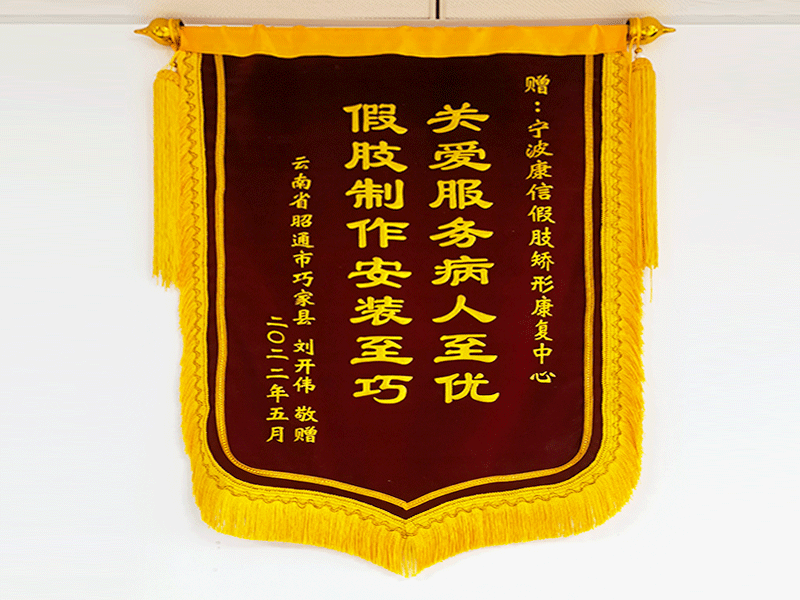 赠：宁波康信假肢矫形康复中心
关爱服务病人至优
假肢制作安装至巧
云南省昭通市巧家县 刘开伟 敬赠
二〇二二年五月